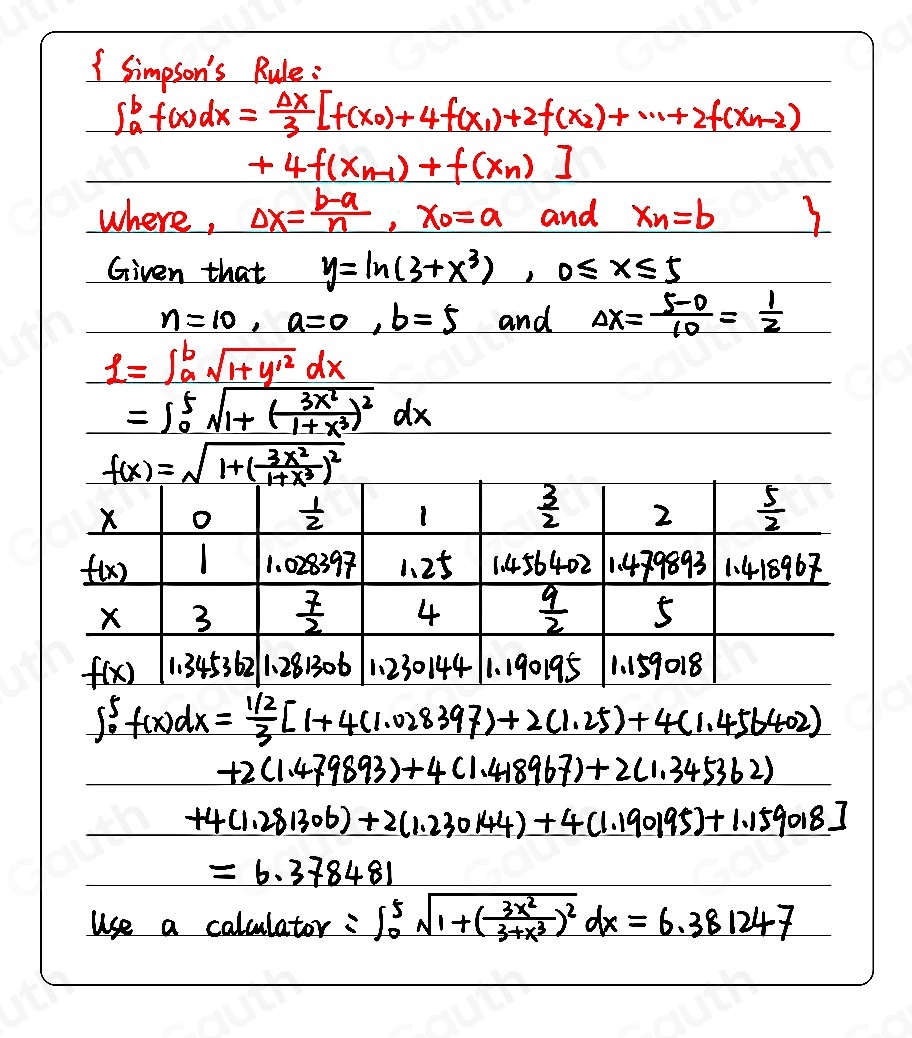 { Simpson's Rule:
∫ₐᵇ f(x)dx = Δx/3 [f(x₀)+4f(x₁)+2f(x₂)+⋯+2f(xₙ₋₂)
+4f(xₙ₋₁)+f(xₙ) ]
where, Δx = (b-a)/n , x₀=a and xₙ=b }
Given that y=ln(3+x³) , 0≤x≤5
n=10, a=0, b=5 and Δx = (5-0)/10 = 1/2
L = ∫ₐᵇ √(1+y'²) dx
= ∫₀⁵ √(1+(3x²/(1+x³))²) dx
f(x) = √(1+(3x²/(1+x³))²)
x 0 1/2 1 3/2 2 5/2
f(x) 1 1.028397 1.25 1.456402 1.479893 1.418967
x 3 7/2 4 9/2 5
f(x) 1.345362 1.281306 1.230144 1.190195 1.159018
∫₀⁵ f(x)dx = (1/2)/3 [1+4(1.028397)+2(1.25)+4(1.456402)
+2(1.479893)+4(1.418967)+2(1.345362)
+4(1.281306)+2(1.230144)+4(1.190195)+1.159018]
= 6.378481
Use a calculator: ∫₀⁵ √(1+(3x²/(3+x³))²) dx = 6.381247
Gauth